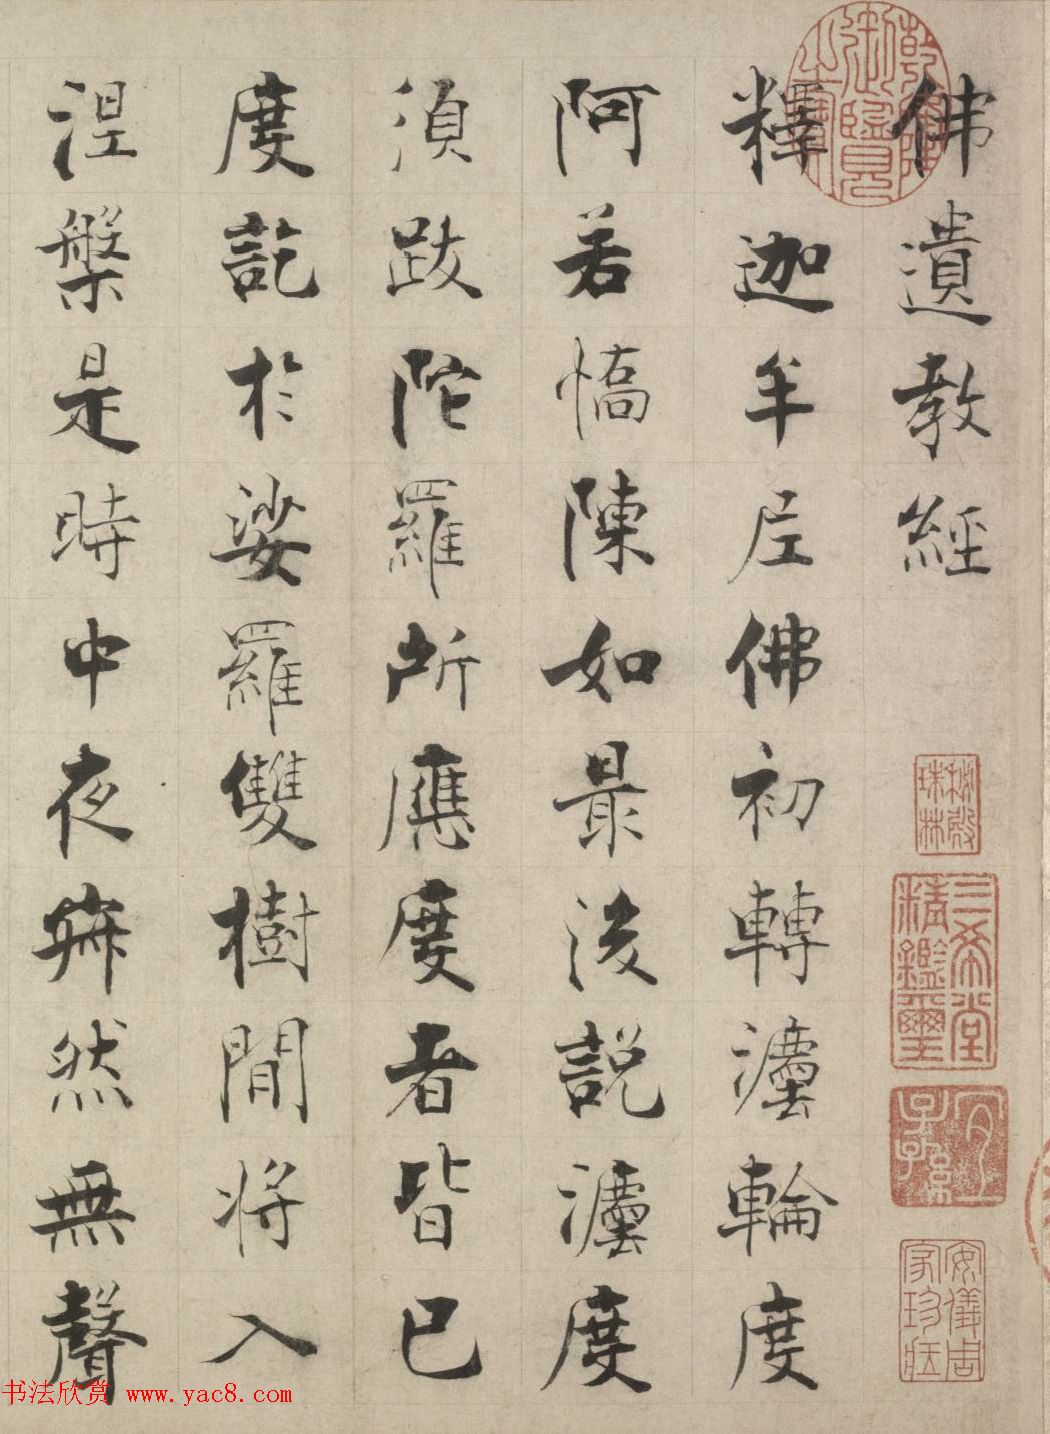 佛遺教經
釋迦牟尼佛初轉灋輪度
阿若憍陳如最後説灋度
須跋陀羅所應度者皆已
度訖於娑羅雙樹間將入
涅槃是時中夜寂然無聲
乾隆御覽之寶
秘殿珠林
三希堂精鑑璽
宜子孫
安儀周家珍藏
书法欣赏 www.yac8.com